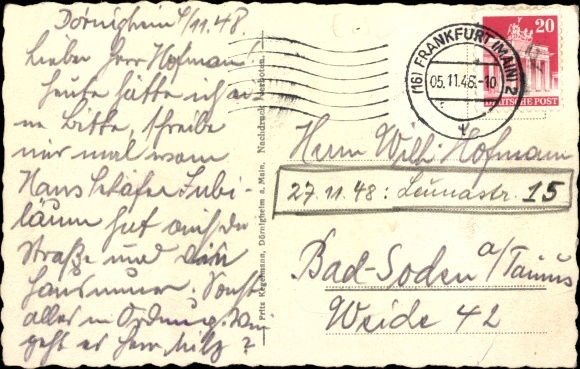 Dörnigheim 4/11.48
Lieber Herr Hofmann!
Heute hätte ich ei-
ne Bitte, schreibe
mir mal wann
Hans Schäfer Jubi-
läum hat auch die
Straße und
Hausnummer. Sonst
alles in Ordnung. Wie
geht es Herr Milz?
Fritz Kegelmann, Dörnigheim a. Main. Nachdruck verboten.
(16) FRANKFURT (MAIN) 2
05.11.48.-10
20
DEUTSCHE POST
Herrn Wilh. Hofmann
27.11.48: Leunastr. 15
Bad-Soden a/Taunus
Weide 42